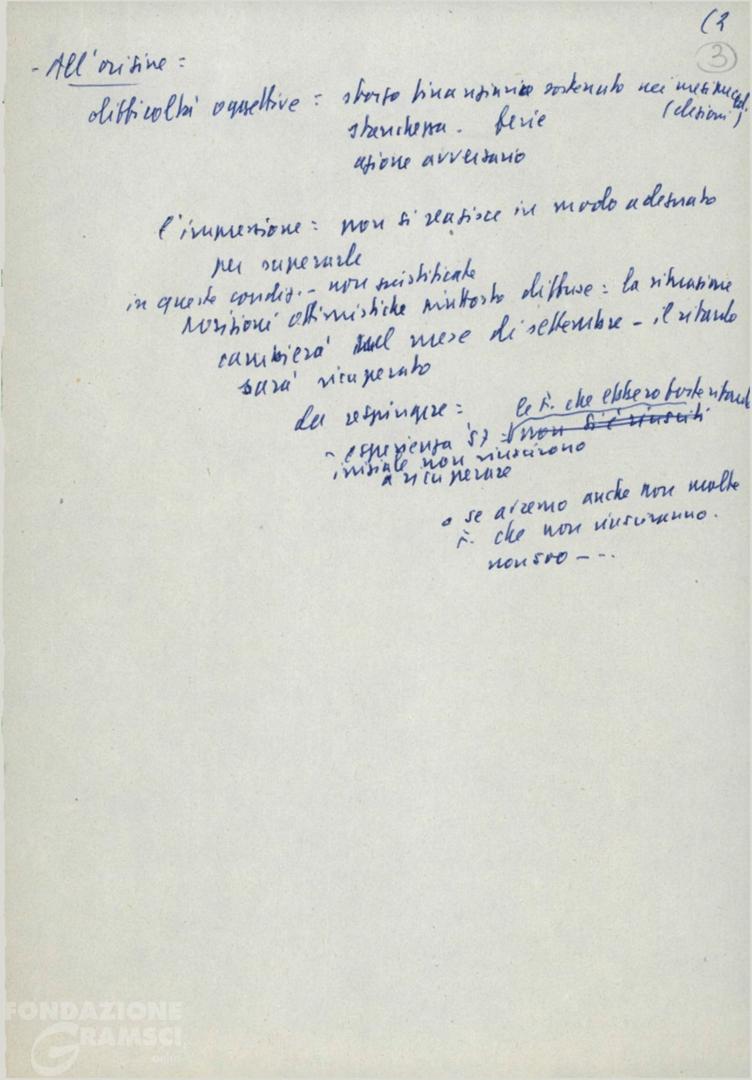 (2
3
- All'origine =
difficoltà oggettive = sforzo finanziario sostenuto nei mesi
(elezioni)
stanchezza. ferie
azione avversario
l'impressione = non si reagisce in modo adeguato
per superarle
in queste condiz. - non giustificate
posizioni ottimistiche piuttosto diffuse = la situazione
cambierà nel mese di settembre - il ritardo
sarà recuperato
da respingere =
le F. che ebbero forte ritardo
- esperienza '57 = non si è riusciti
iniziale non riuscirono
a recuperare
o se avremo anche non molte
F. che non riusciranno.
non so - - .
FONDAZIONE
GRAMSCI